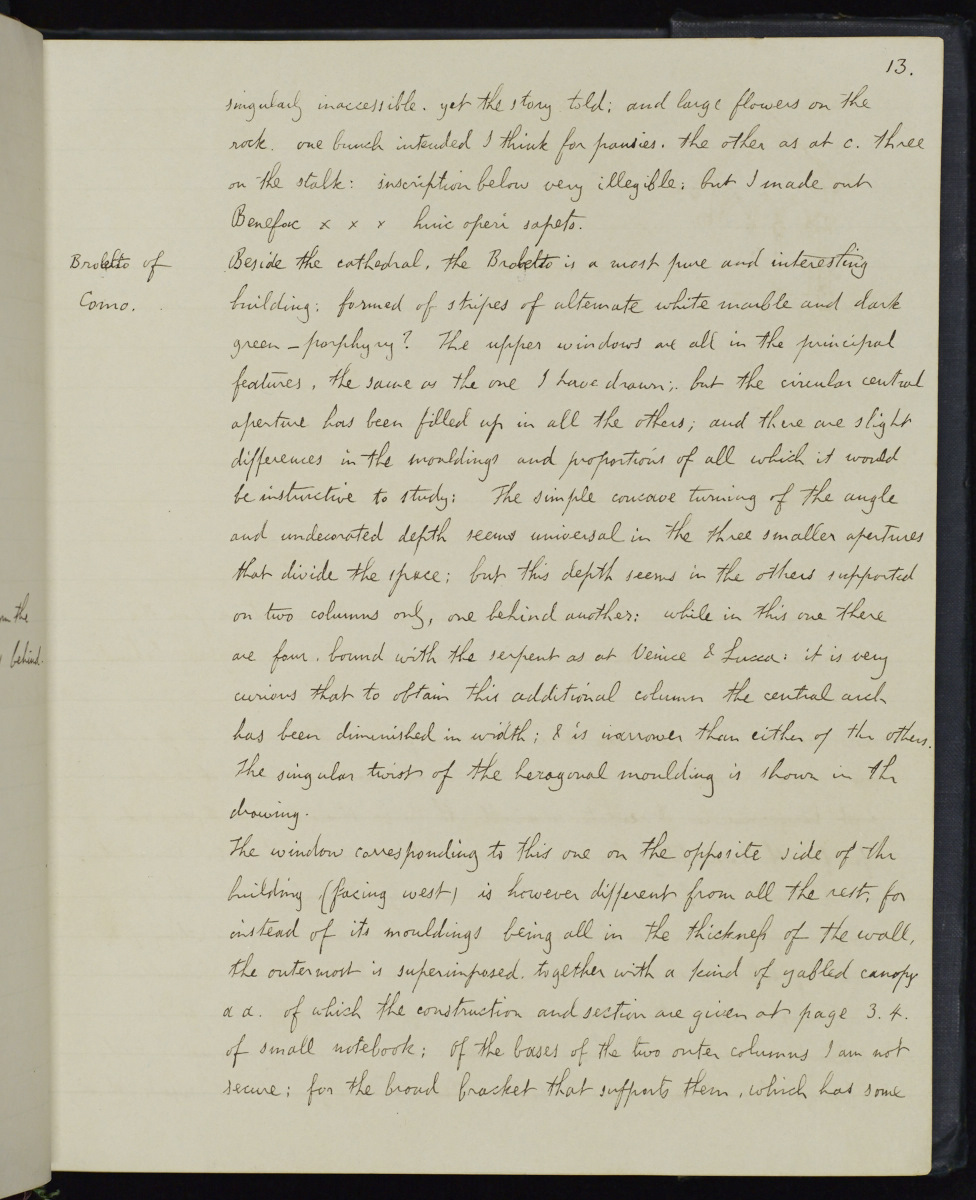 13.
singularly inaccessible. yet the story told; and large flowers on the
rock. one bunch intended I think for pansies. the other as at c. three
on the stalk: inscription below very illegible; but I made out
Benefac x x x huic operi
Broletto of
Como.
Beside the cathedral, the Broletto is a most pure and interesting
building; formed of stripes of alternate white marble and dark
green – porphyry? The upper windows are all in the principal
features, the same as the one I have drawn; but the circular central
aperture has been filled up in all the others; and there are slight
differences in the mouldings and proportions of all which it would
be instructive to study: The simple concave turning of the angle
and undecorated depth seems universal in the three smaller apertures
that divide the space; but this depth seems in the others supported
on two columns only, one behind another: while in this one there
are four. bound with the serpent as at Venice & Lucca: it is very
curious that to obtain this additional column the central arch
has been diminished in width; & is narrower than either of the others.
The singular twist of the hexagonal moulding is shown in the
drawing.
The window corresponding to this one on the opposite side of the
building (facing west) is however different from all the rest, for
instead of its mouldings being all in the thickness of the wall,
the outermost is superimposed. together with a kind of gabled canopy
a a. of which the construction and section are given at page 3. 4.
of small notebook; Of the bases of the two outer columns I am not
secure; for the broad bracket that supports them, which has some
the
behind.